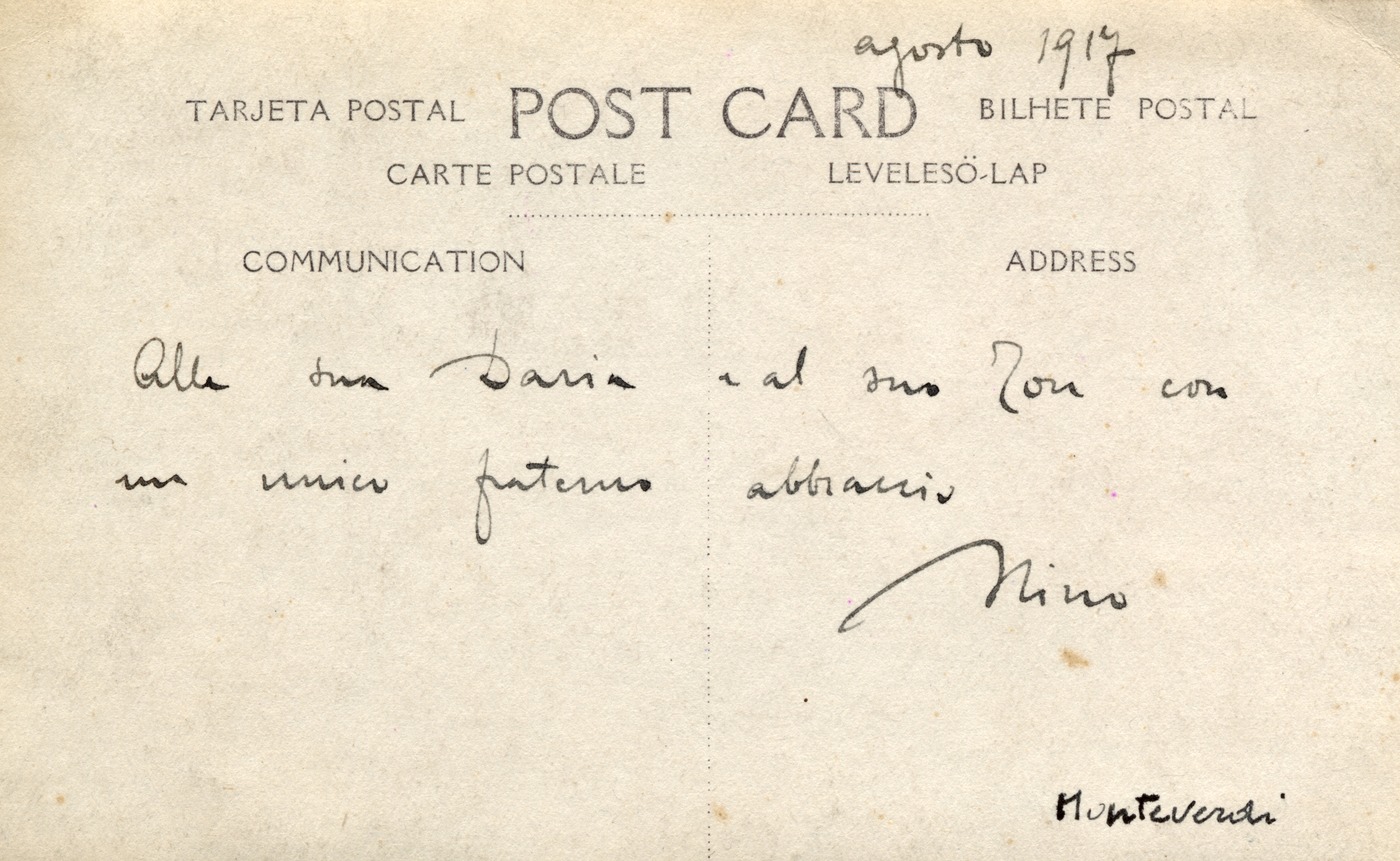 agosto 1917
TARJETA POSTAL POST CARD BILHETE POSTAL
CARTE POSTALE LEVELESÖ-LAP
COMMUNICATION ADDRESS
Alla sua Daria e al suo Ton con
un unico fraterno abbraccio
Nino
Monteverdi